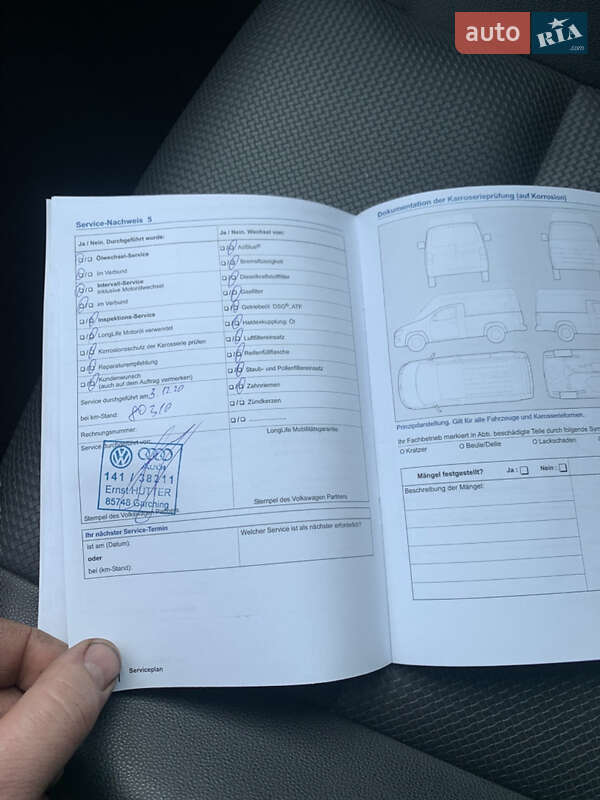 auto RIA .com
Service-Nachweis 5
Ja / Nein, Durchgeführt wurde:
Ölwechsel-Service
im Verbund
Intervall-Service
inklusive Motorölwechsel
im Verbund
Inspektions-Service
LongLife Motoröl verwendet
Korrosionsschutz der Karosserie prüfen
Reparaturempfehlung
Kundenwunsch
(auch auf dem Auftrag vermerken)
Service durchgeführt am: 3.12.20
bei km-Stand: 80310
Rechnungsnummer:
Service durchgeführt von:
AUDI
141 / 38211
Ernst HUTTER
85748 Garching
Stempel des Volkswagen Partners
Ja / Nein, Wechsel von:
AdBlue®
Bremsflüssigkeit
Dieselkraftstofffilter
Gasfilter
Getriebeöl: DSG®, ATF
Haldexkupplung: Öl
Luftfiltereinsatz
Reifenfüllflasche
Staub- und Pollenfiltereinsatz
Zahnriemen
Zündkerzen
LongLife Mobilitätsgarantie:
Stempel des Volkswagen Partners
Ihr nächster Service-Termin
ist am (Datum):
oder
bei (km-Stand):
Welcher Service ist als nächster erforderlich?
Serviceplan
Dokumentation der Karosserieprüfung (auf Korrosion)
Prinzipdarstellung. Gilt für alle Fahrzeuge und Karosserieformen.
Ihr Fachbetrieb markiert in Abb. beschädigte Teile durch folgende Sym
O Kratzer
O Beule/Delle
O Lackschaden
Mängel festgestellt? Ja: Nein:
Beschreibung der Mängel: